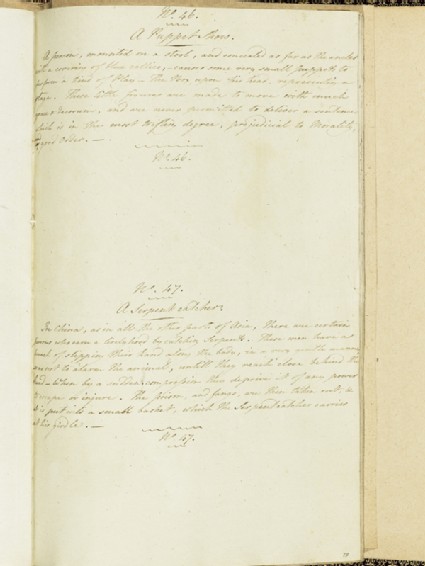 No. 46.
A Puppet Show.
A person, mounted on a stool, and concealed as far as the ancles
with a covering of blue callico, causes some very small puppets to
perform a kind of Play. The box upon his head, represents the
Stage. These little figures are made to move with much
grace & decorum, and are never permitted to deliver a sentence
which is in the most distant degree, prejudicial to Morality
or good order. —
No. 46.
No. 47.
A Serpent catcher.
In China, as in all the other parts of Asia, there are certain
persons who earn a livelyhood by catching Serpents. These men have a
of slipping their hand along the body, in a very
so as not to alarm the animal, untill they reach close behind the
head, when by a sudden compression they deprive it of any power
to escape or injure. The poison, and fangs, are then taken out, &
it is put into a small basket, which the Serpent catcher carries
at his girdle. —
No. 47.